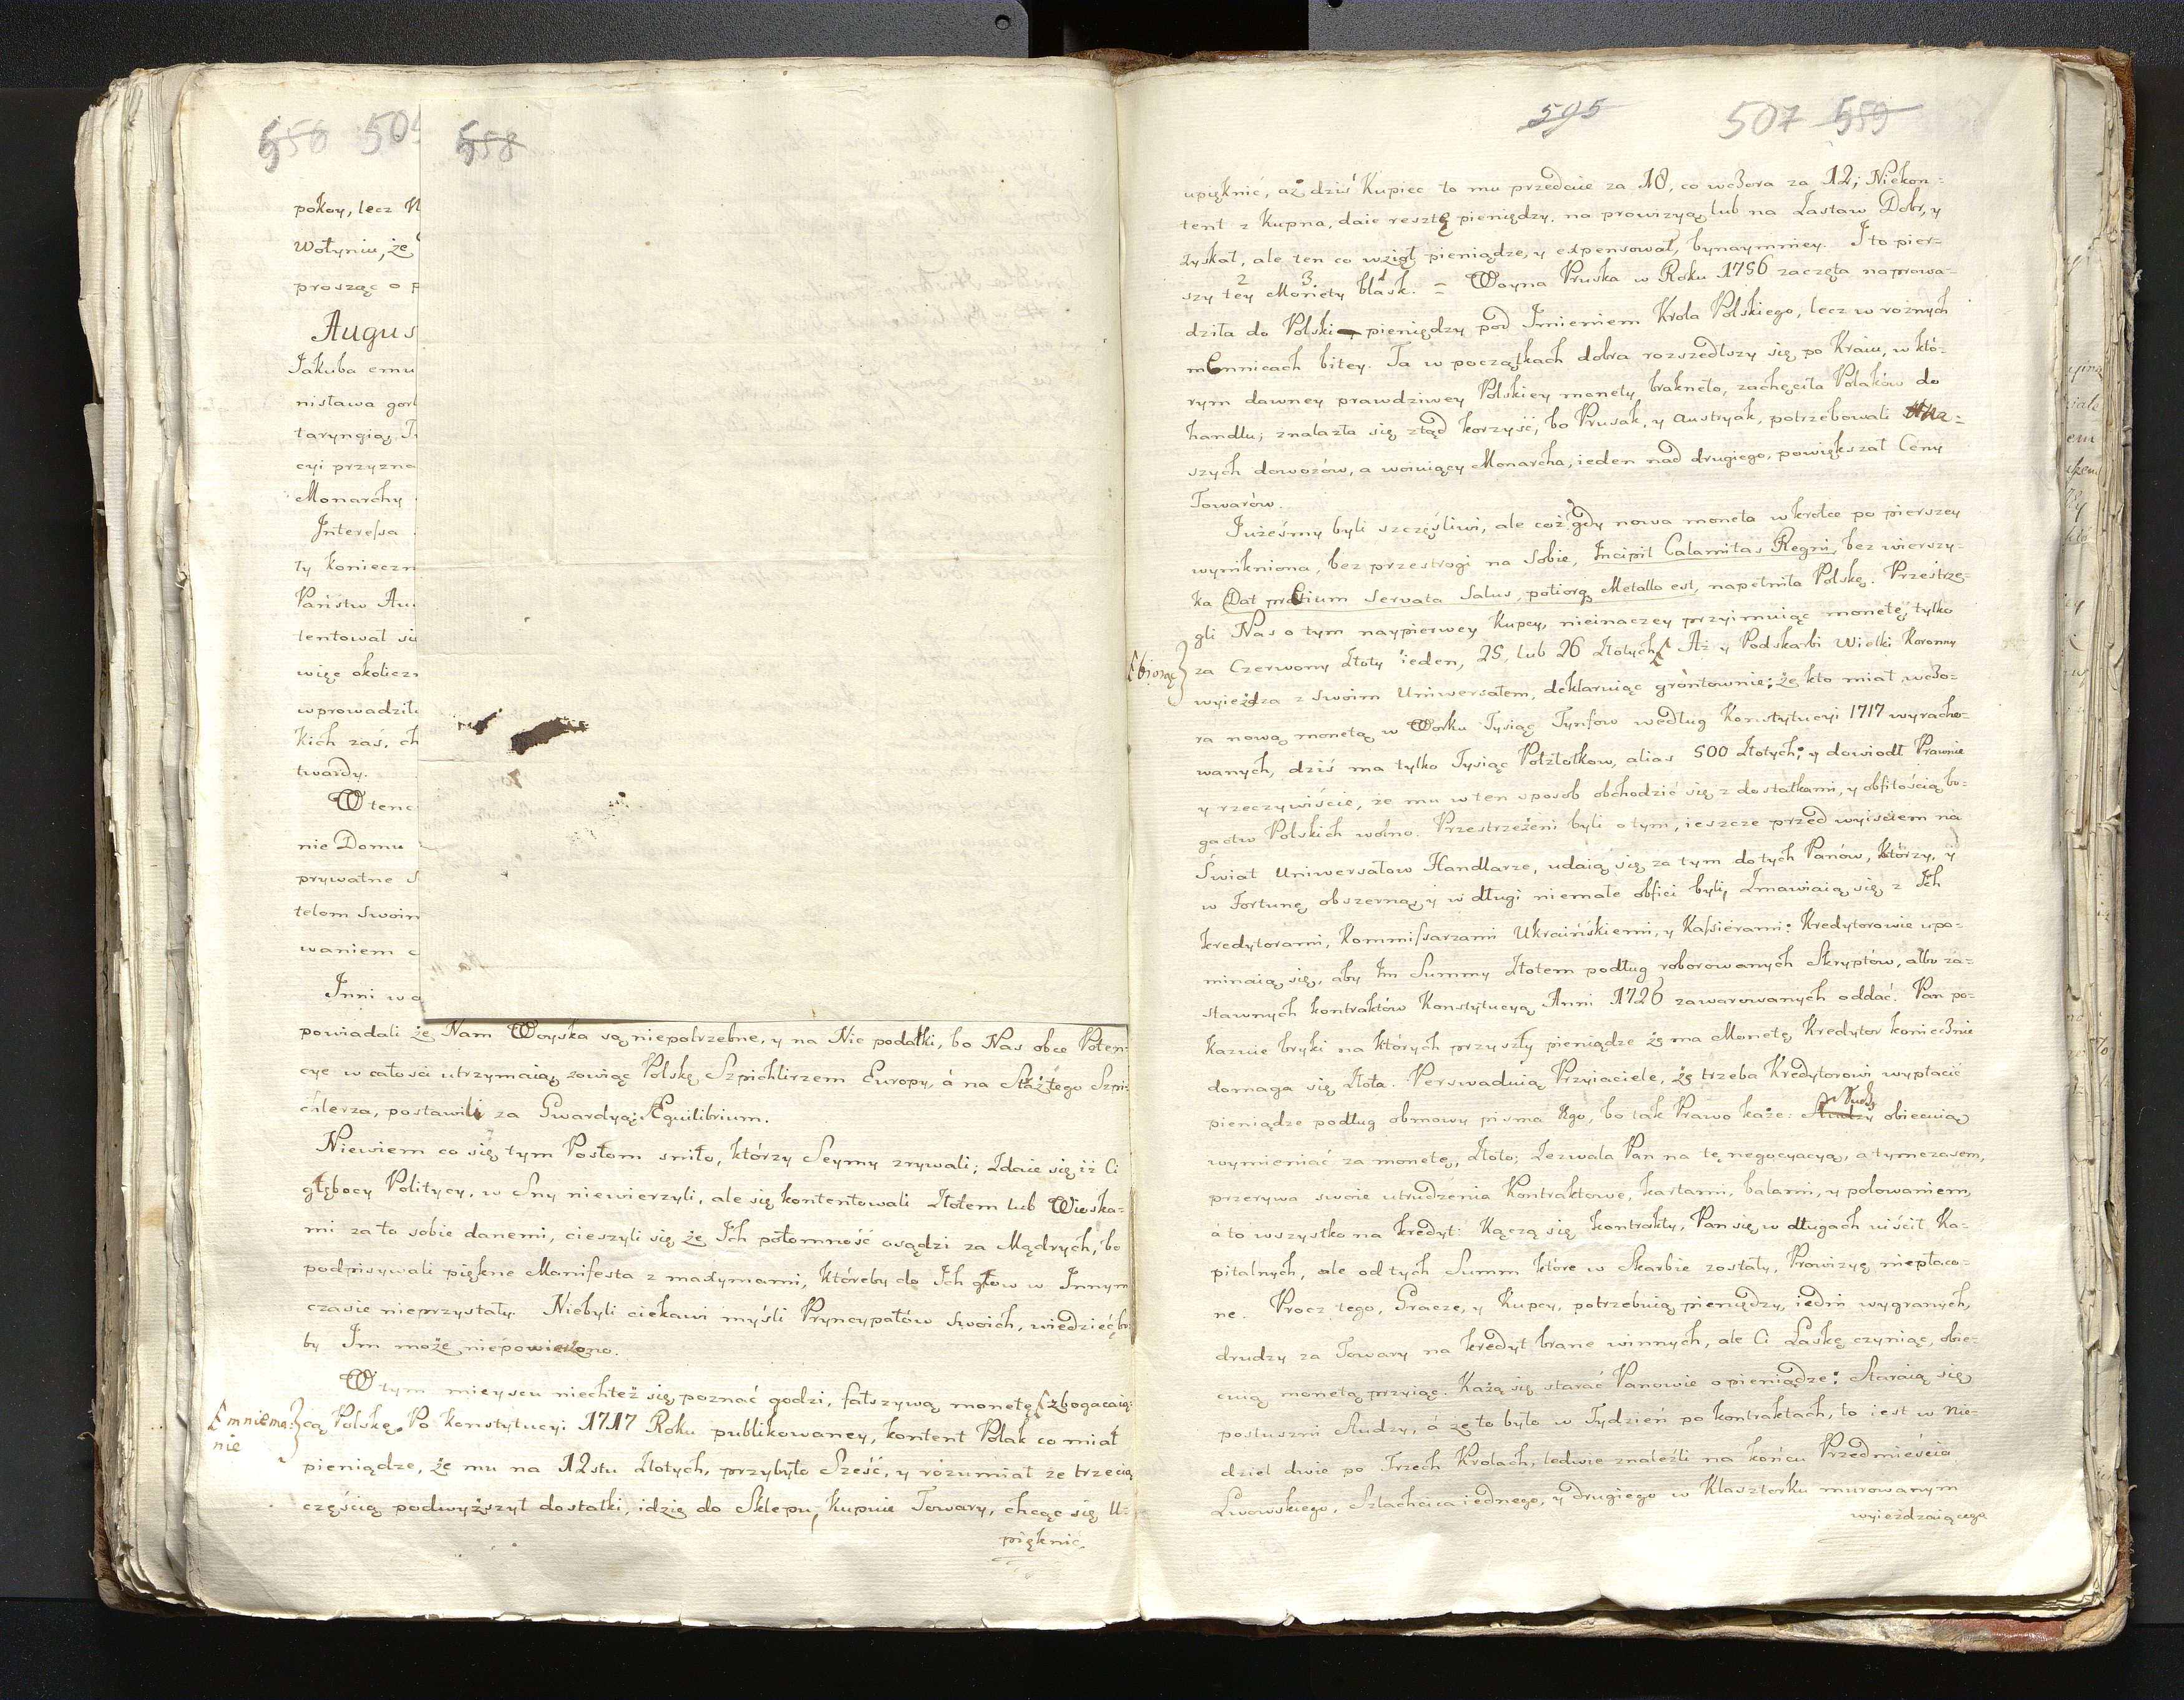 558 505
558
pokoy, lecz
Wołyniu, że
prosząc o p
Augus
Jakuba emu
nisława gor
taryngią,
cyi przyzna
Monarchy
Interessa
ty konieczn
Państw Au
tentował się
więc okolicz
wprowadził
kich zaś, ch
twardy.
W tenc
nie Domu
prywatne
telom swoim
waniem
Inni wo
powiadali że Nam Woyska są niepotrzebne, y na Nic podatki, bo Nas obce Poten-
cye w całości utrzymaią zowiąc Polskę Szpichlirzem Europy, á na Straż tego Szpi-
chlerza, postawili za Gwardyą: Æquilibrium.
Niewiem co się tym Posłom sniło, którzy Seymy zrywali; Zdaie się iż Ci
głębocy Politycy, w Sny niewierzyli, ale się kontentowali Złotem lub Wioska-
mi za to sobie danemi, cieszyli się że Ich potomność osądzi za Mądrych, bo
podpisywali piękne Manifesta z maxymami, któreby do Ich głow w Innym
czasie nieprzystały. Niebyli ciekawi myśli Pryncypałów swoich, wiedzieć, bo
by Im może niepowierzono.
W tym mieyscu niechteż się poznać godzi, fałszywą monetę [zbogacaią-
[mniema-
nie]
cą Polskę. Po Konstytucyi 1717 Roku publikowaney, kontent Polak co miał
pieniądze, że mu na 12stu Złotych, przybyło Sześć, y rozumiał że trzecią
częścią podwyższył dostatki, idzie do Sklepu, kupuie Towary, chcąc się U-
pięknić.
505 507 559
upięknić, aż dziś Kupiec to mu przedaie za 18, co wczora za 12; Niekon-
tent z Kupna, daie resztę pieniędzy na prowizyą lub na Zastaw Dobr, y
zyskał, ale ten co wziął pieniądze, y expensował, bynaymniey. I to pier-
2 3 1
szy tey Moniety blask. = Woyna Pruska w Roku 1756 zaczęta naprowa-
dziła do Polski pieniędzy pod Imieniem Krola Polskiego, lecz w rożnych
mennicach bitey. Ta w początkach dobra rozszedłszy się po Kraiu, w któ-
rym dawney prawdziwey Polskiey monety brakneło, zachęciła Polaków do
handlu; znalazła się ztąd korzyść, bo Prusak, y Austryak, potrzebowali Na-
szych dowozów, a woiuiący Monarcha, ieden nad drugiego, powiększał Ceny
Towarów.
Jużeśmy byli szczęśliwi, ale coż? gdy nowa moneta wkrótce po pierszey
wynikniona, bez przestrogi na sobie, Incipit Calamitas Regni, bez wierszy-
ka Dat pretium Servata Salus, potiorq Metallo est, napełniła Polskę. Przestrze-
gli Nas o tym naypierwey Kupcy, nieinaczey przyimuiąc monetę, tylko
[biorąc]
za Czerwony Złoty ieden, 25, lub 26 Złotych [ Aż y Podskarbi Wielki Koronny
wyieżdza z swoim Uniwersałem, deklaruiąc gróntownie: że kto miał wczo-
ra nową monetą w Worku Tysiąc Tynfow według Konstytucyi 1717 wyracho-
wanych, dziś ma tylko Tysiąc Połzłotkow, alias 500 Złotych; y dowiodł Prawnie
y rzeczywiście, że mu w ten sposob obchodzić się z dostatkami, y obfitością bo-
gactw Polskich wolno. Przestrzeżeni byli o tym, ieszcze przed wyiściem na
Świat Uniwersałow Handlarze, udaią się za tym do tych Panów, którzy, y
w Fortunę obszerną, y w długi niemałe obfici byli, Zmawiaią się z Ich
kredytorami, Kommissarzami Ukraińskiemi, y Kassierami: Kredytorowie upo-
minaią się, aby Im Summy Złotem podług roborowanych Skryptów, albo za-
stawnych kontraktów Konstytucyą Anni 1726 zawarowanych oddać. Pan po-
kazuie bryki na których przyszły pieniądze że ma Monetę, Kredytor koniecznie
domaga się Złota. Perswaduią Przyiaciele, że trzeba Kredytorowi wypłacić
pieniądze podług obmowy pisma Ego, bo tak Prawo każe: Słudzy obiecuią
wymieniać za monetę, Złoto; Zezwala Pan na tę negocyacyą, a tymczasem,
przerywa swoie utrudzenia Kontraktowe, kartami, balami, y polowaniem,
á to wszystko na kredyt: Kączą się kontrakty, Pan się w długach uiścił, Ka-
pitalnych, ale od tych Summ które w Skarbie zostały, Prowizyę niepłaco-
ne. Procz tego, Gracze, y Kupcy, potrzebuią pieniędzy, iedni wygranych,
drudzy za Towary na kredyt brane winnych, ale Ci Laskę czyniąc, obie-
cuią monetą przyiąc. Każą się starać Panowie o pieniądze: Staraią się
posłuszni Słudzy, á że to było w Tydzień po kontraktach, to iest w Nie-
dziel dwie po Trzech Krolach, ledwie znaleźli na końcu Przedmieścia
Lwowskiego, Szlachcica iednego, y drugiego w Klasztorku murowanym
wyieżdzaiącego